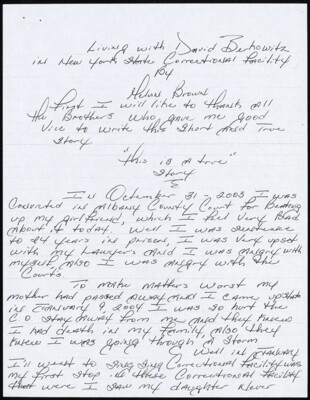 Living with David Berkowitz
in New York State Correctional Facility
By
Brown
First I will like to thank all
the Brothers who gave me good
Vice to write this Short and True
Story
"This is A true"
Story
IN October 31 - 2003 I was
Convicted in Albany County Court for Beating
up my girlfriend, which I feel very Bad
About it today. Well I was sentence
to 24 years in prison, I was very upset
with my Lawyers And I was Angry with
myself, Also I was Angry with the
Courts
To make matters worst my
mother had passed Away And I came upstate
in January 9, 2004 I was so hurt the
C.O Stay Away from me And they knew
I had death in my family, Also they
knew I was going through A Storm
Well in January
I'll went to Sing Sing Correctional Facility was
my first stop in these Correctional Facility
were I saw my daughter Never